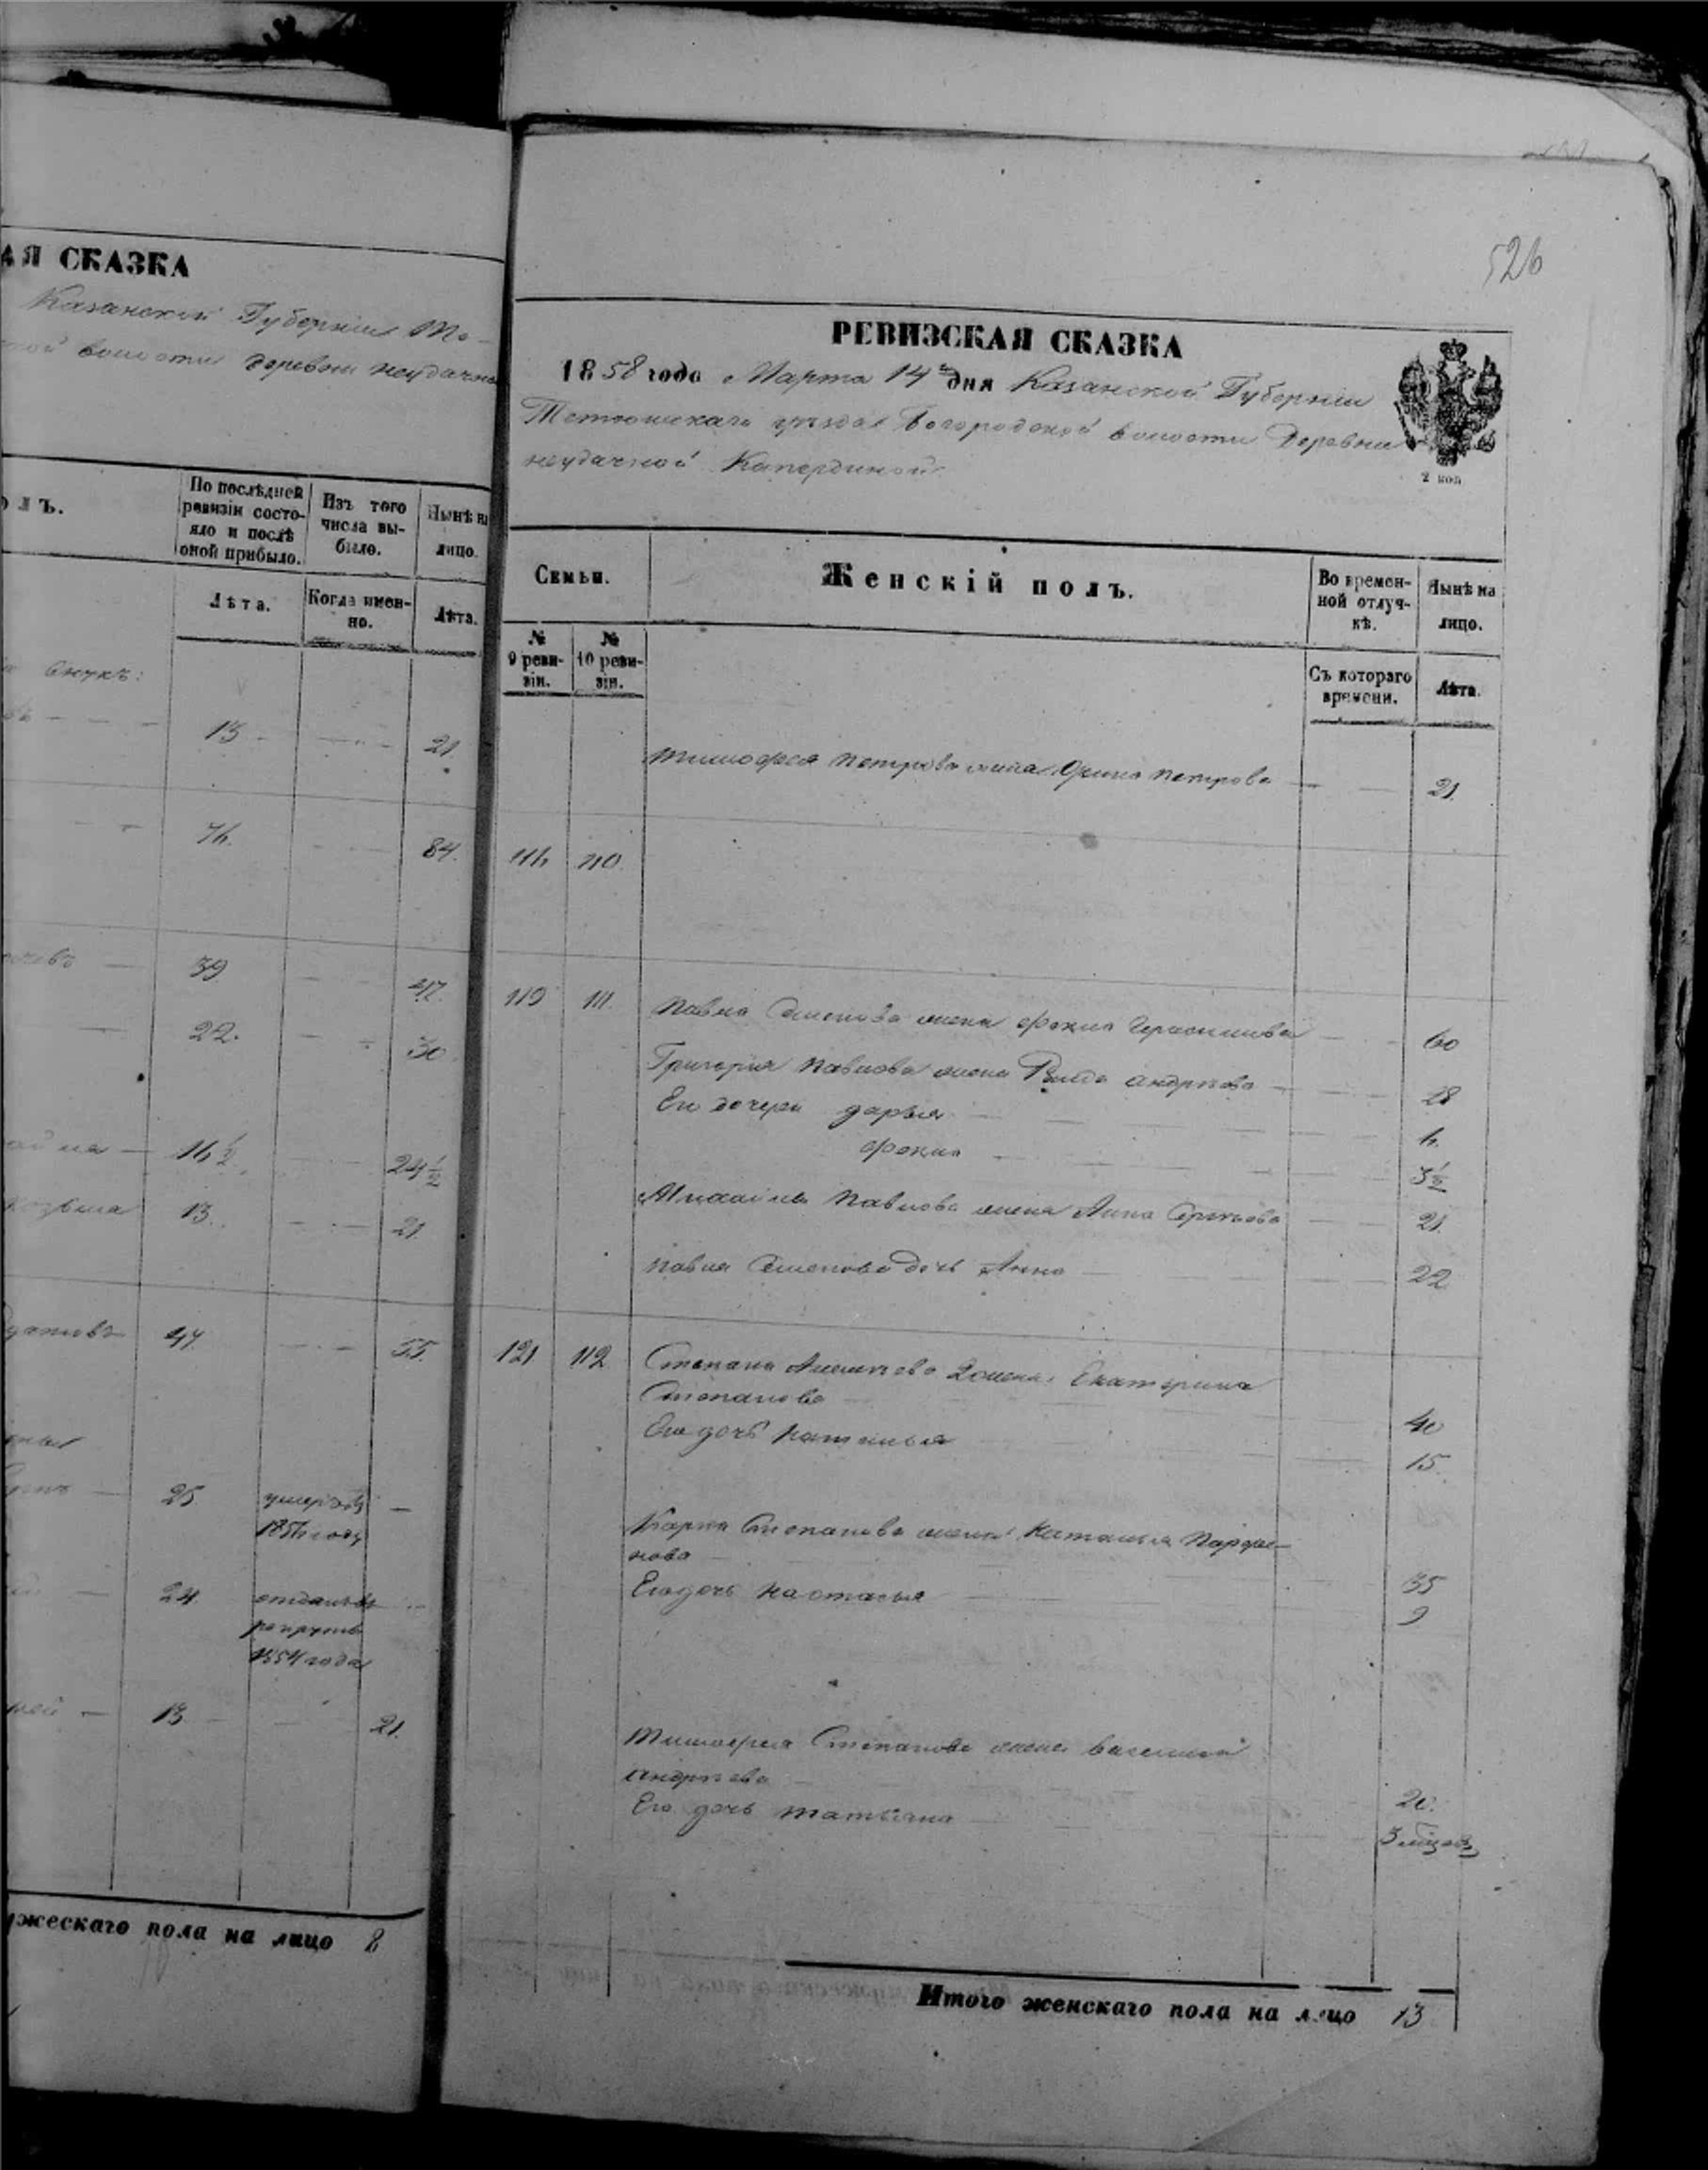 АЯ СКАЗКА
Казанской Губерніи Те-
волости деревни неудачной
ОЛЪ.
По послѣдней ревизіи состо- яло и послѣ оной прибыло.
Изъ того числа вы- было.
Нынѣ на лицо.
Лѣта.
Когда имен- но.
Лѣта.
внукъ:
13 21.
76. 84.
39 47.
22. 30
16 1/2 24 1/2
козьма 13. 21.
47 55.
25 умеръ въ
185 году
24. отданъ въ
рекруты
1854 года
13 21.
ужескаго пола на лицо 8
526
РЕВИЗСКАЯ СКАЗКА
1858 года Марта 14 дня Казанской Губерніи
Тетюшскаго уѣзда Богородской волости Деревни
неудачной Капердиной
2 коп
Семьи.
Женскій полъ.
Во времен- ной отлуч- кѣ.
Нынѣ на лицо.
№ 9 реви- зіи.
№ 10 реви- зіи.
Съ котораго времени.
Лѣта.
Тимофея Петрова жена Орина петрова 21.
116 110
119 111. Павла Семенова жена Фекла Герасимова 60
Григорья Павлова жена андрѣева 28
Его дочери дарья 6.
Фекла 3 1/2
Михайла Павлова жена Анна Сергѣева 21.
Павла Семенова дочь Анна 22
121 112 Степана Алексѣева 2 жена Екатерина
Степанова 40
Его дочь наталья 15.
Карпа Степанова жена Наталья Парфе-
нова 35
Его дочь настасья 9
Тимофея Степанова жена василиса
андрѣева 20.
Его дочь татьяна 3 мѣсяц
Итого женскаго пола на лицо 13